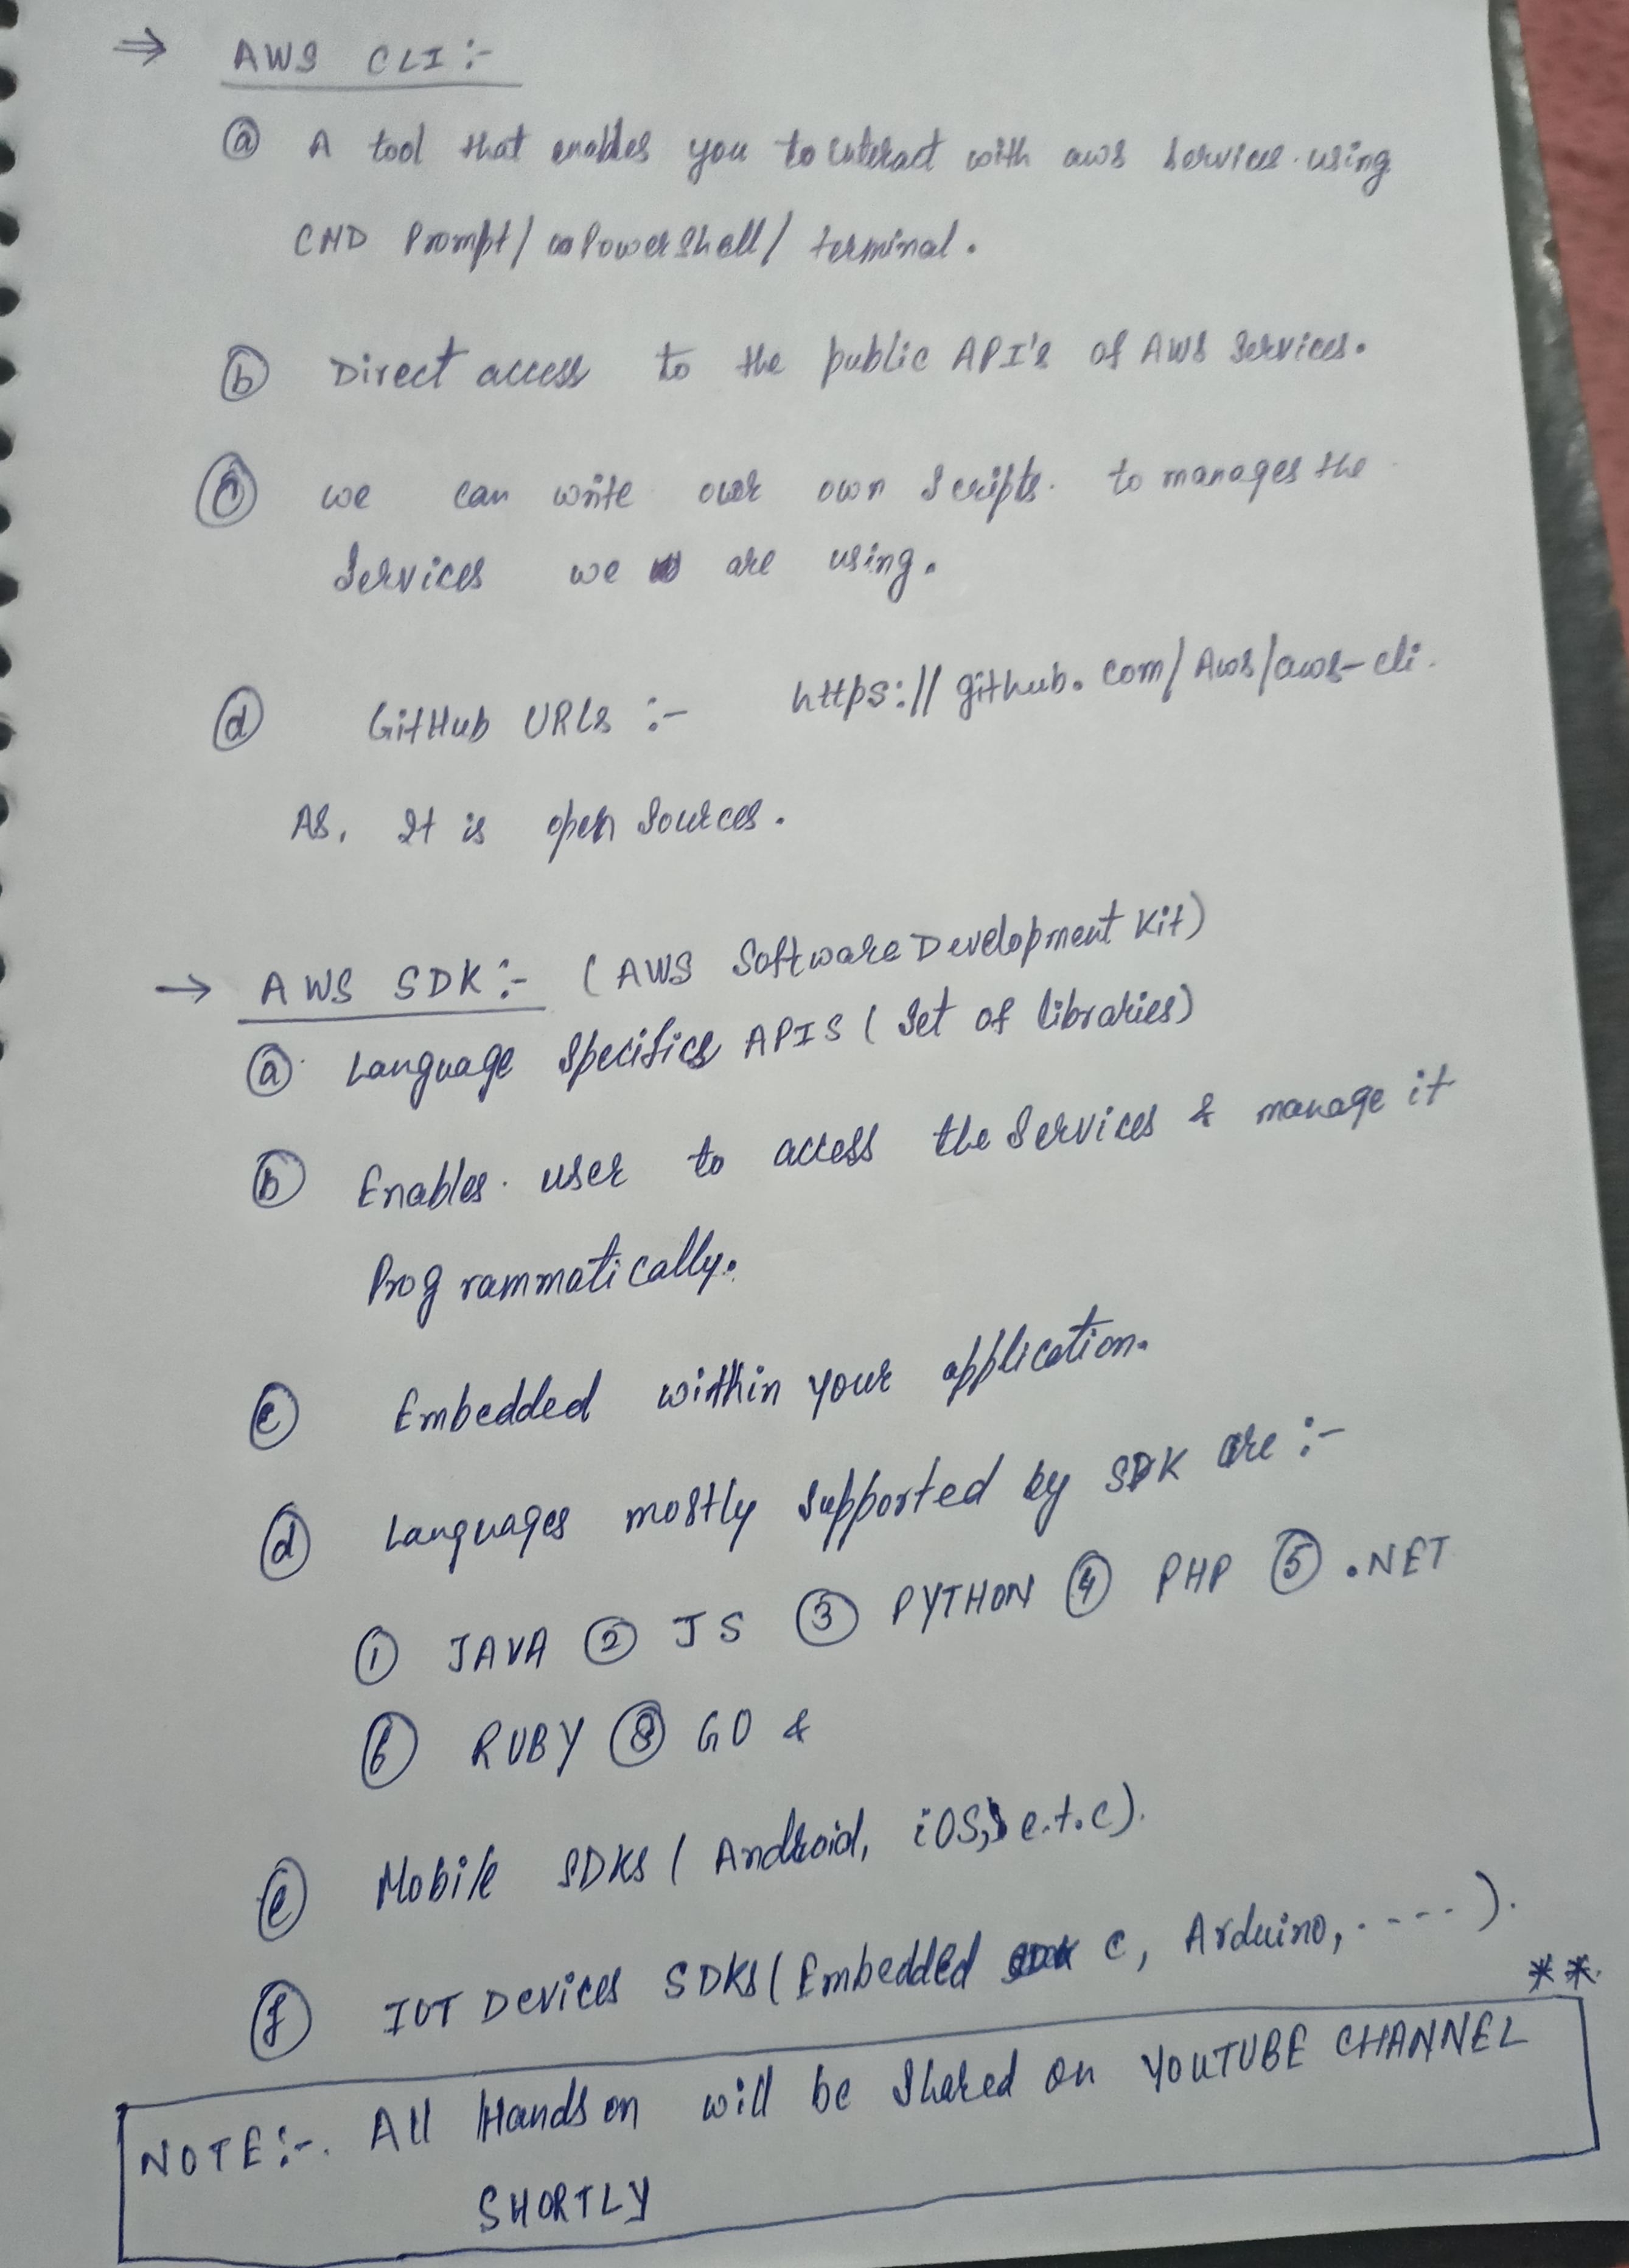 ⇒ AWS CLI :-
ⓐ A tool that enables you to interact with aws services using
CMD Prompt/ PowerShell/ terminal.
ⓑ Direct access to the public API's of AWS Services.
ⓒ we can write our own scripts. to manages the
services we are using.
ⓓ GitHub URLs :- https://github.com/Aws/aws-cli.
As, It is open sources.
→ AWS SDK :- (AWS Software Development Kit)
ⓐ Language specifics APIS (set of libraries)
ⓑ Enables user to access the services & manage it
Programmatically.
ⓒ Embedded within your application.
ⓓ Languages mostly supported by SDK are :-
① JAVA ② JS ③ PYTHON ④ PHP ⑤ .NET
⑥ RUBY ⑧ GO &
ⓔ Mobile SDKs (Android, iOS, e.t.c).
ⓕ IOT Devices SDKs (Embedded C, Arduino, .----).
**
NOTE :-. All Hands on will be shared on YOUTUBE CHANNEL
SHORTLY